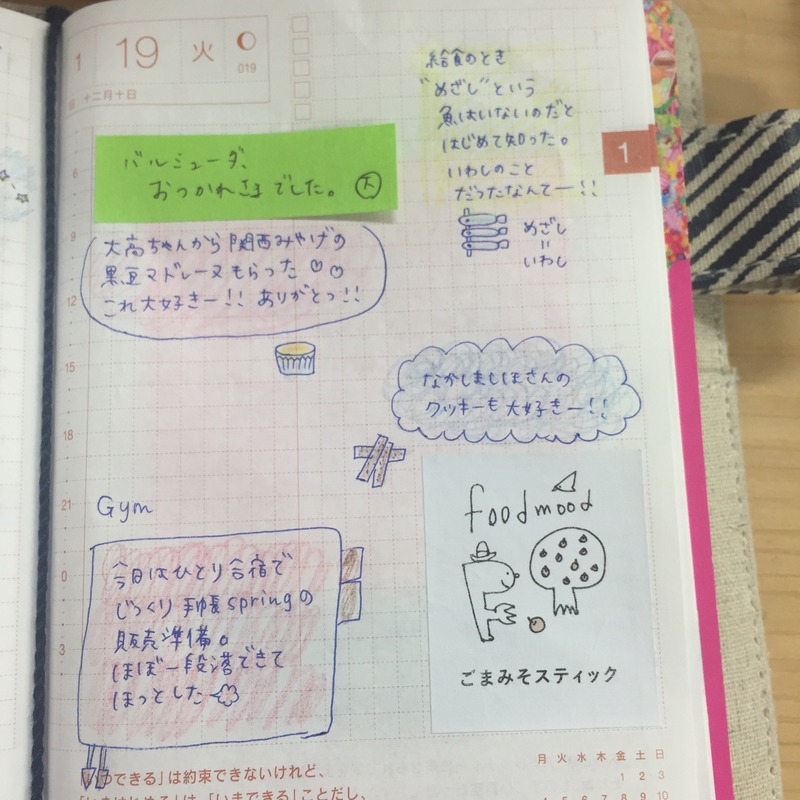 1 19 火
019
十二月十日
給食のとき
"めざし"という
魚はいないのだと
はじめて知った。
いわしのこと
だったなんてー!!
めざし
=
いわし
1
バルミューダ、
おつかれさまでした。大
大高ちゃんから関西みやげの
黒豆マドレーヌもらった♡♡
これ大好きー!! ありがとっ!!
なかしましほさんの
クッキーも大好きー!!
6
9
12
15
18
21
0
3
Gym
今日はひとり合宿で
じっくり手帳springの
販売準備。
ほぼ一段落できて
ほっとした
foodmood
ごまみそスティック
できる」は約束できないけれど、
「いまできる」ことだし、
月 火 水 木 金 土 日
1 2 3
4 5 6 7 8 9 10